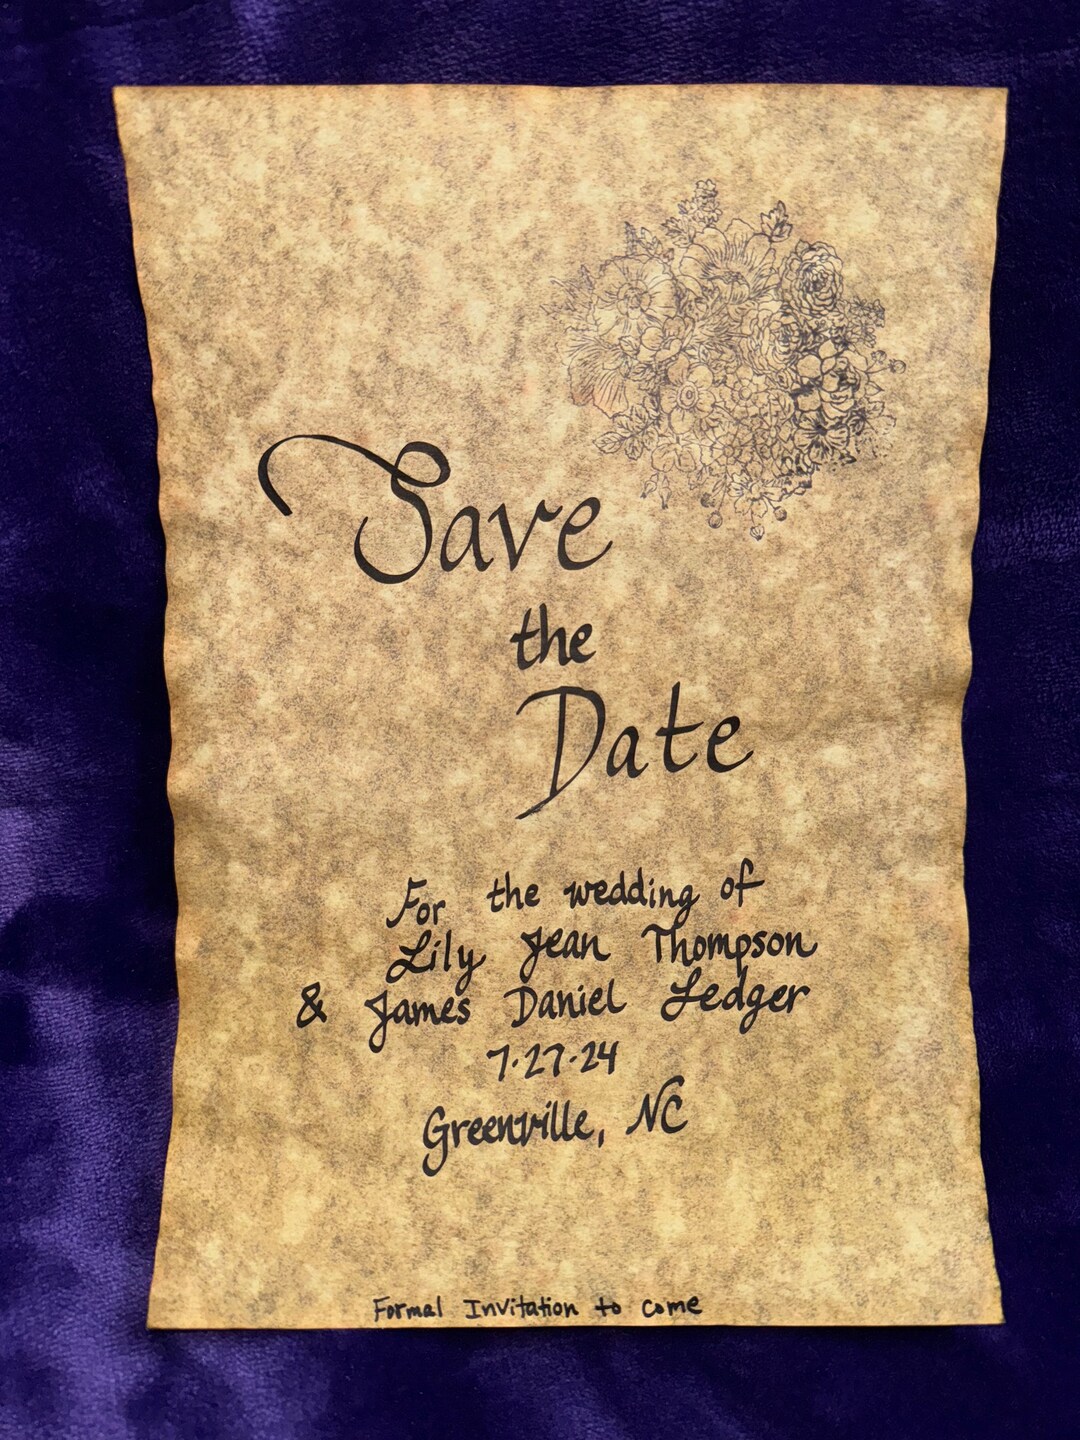 Save
the
Date
For the wedding of
Lily Jean Thompson
& James Daniel Ledger
7·27·24
Greenville, NC
Formal Invitation to come